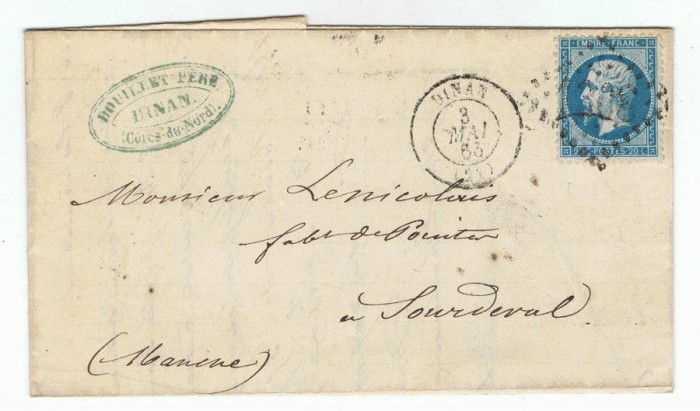 DOUILLET PÈRE
DINAN.
(Côtes-du-Nord).
DINAN
3
MAI
(21)
EMPIRE FRANC
20 C POSTES 20 C
Monsieur Lenicolais
fabt de Pointes
a Sourdeval
(Manche)